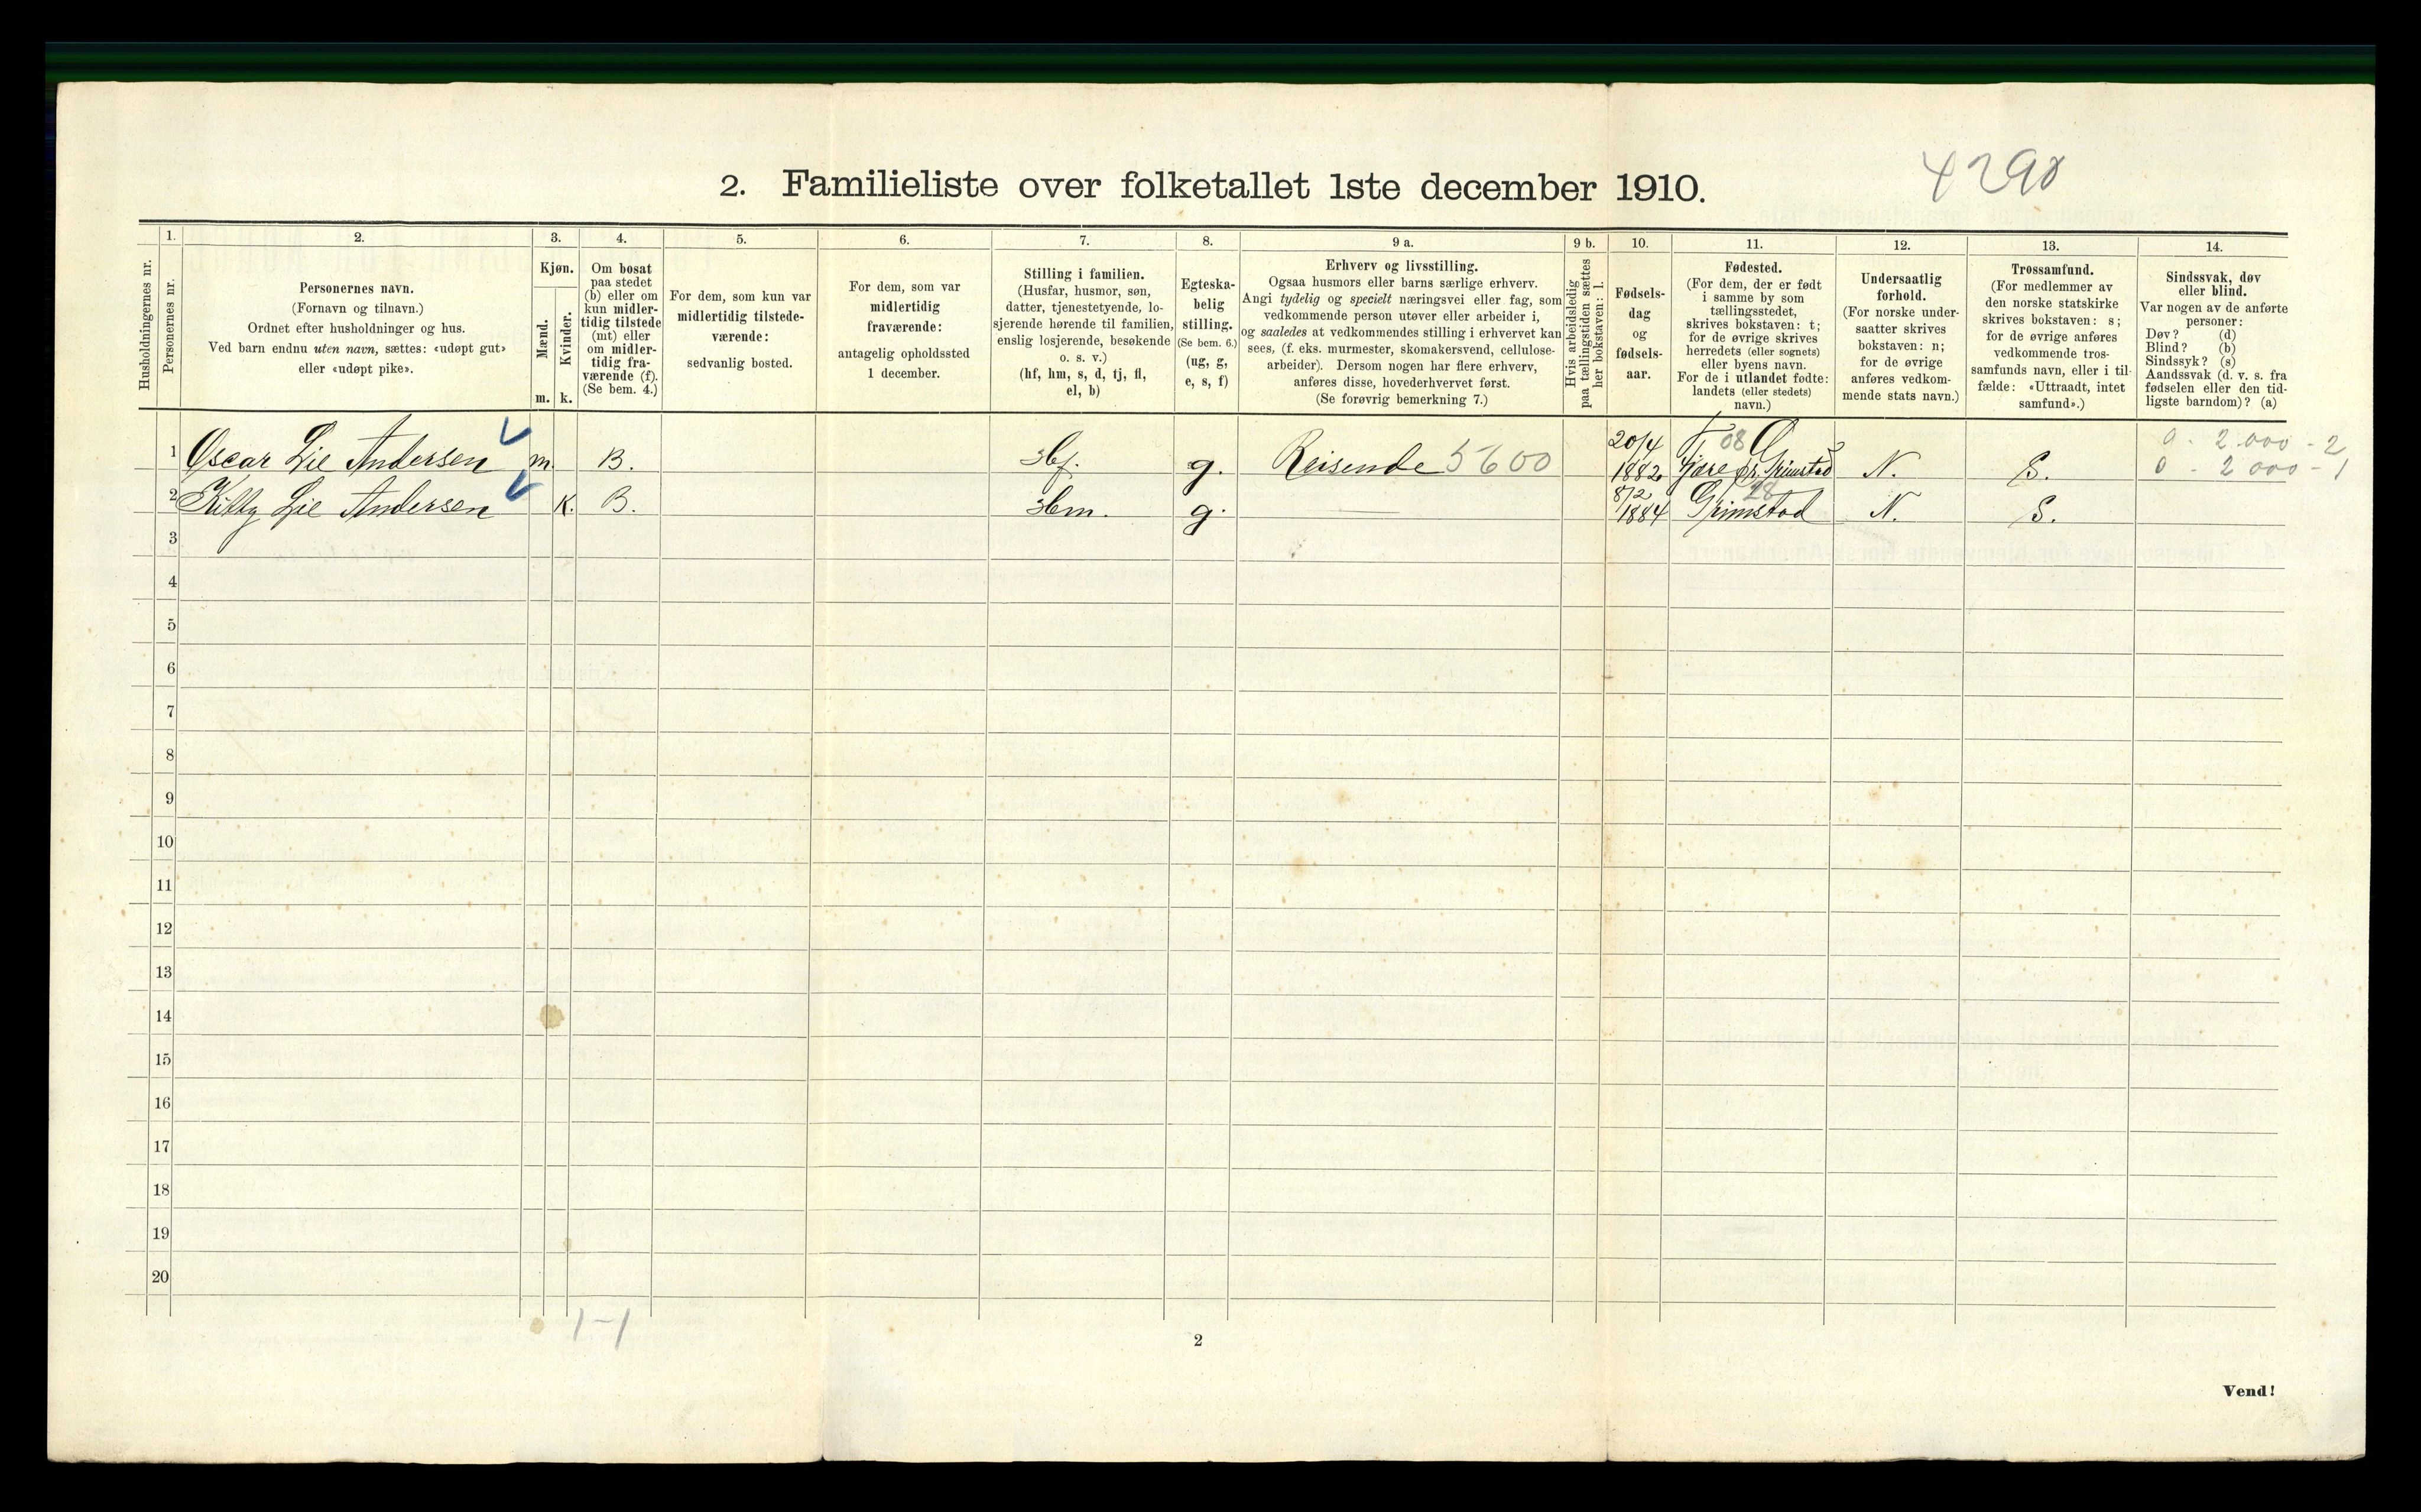 4290
2. Familieliste over folketallet 1ste december 1910.
Husholdningernes nr.
1.
Personernes nr.
2.
Personernes navn.
(Fornavn og tilnavn.)
Ordnet efter husholdninger og hus.
Ved barn endnu uten navn, sættes: «udøpt gut»
eller «udøpt pike».
3.
Kjøn.
Mænd.
Kvinder.
m. k.
4.
Om bosat
paa stedet
(b) eller om
kun midler-
tidig tilstede
(mt) eller
om midler-
tidig fra-
værende (f).
(Se bem. 4.)
5.
For dem, som kun var
midlertidig tilstede-
værende:
sedvanlig bosted.
6.
For dem, som var
midlertidig
fraværende:
antagelig opholdssted
1 december.
7.
Stilling i familien.
(Husfar, husmor, søn,
datter, tjenestetyende, lo-
sjerende hørende til familien,
enslig losjerende, besøkende
o. s. v.)
(hf, hm, s, d, tj, fl,
el, b)
8.
Egteska-
belig
stilling.
(Se bem. 6.)
(ug, g,
e, s, f)
9 a.
Erhverv og livsstilling.
Ogsaa husmors eller barns særlige erhverv.
Angi tydelig og specielt næringsvei eller fag, som
vedkommende person utøver eller arbeider i,
og saaledes at vedkommendes stilling i erhvervet kan
sees, (f. eks. murmester, skomakersvend, cellulose-
arbeider). Dersom nogen har flere erhverv,
anføres disse, hovederhvervet først.
(Se forøvrig bemerkning 7.)
9 b.
Hvis arbeidsledig
paa tællingstiden sættes
her bokstaven: l.
10.
Fødsels-
dag
og
fødsels-
aar.
11.
Fødested.
(For dem, der er født
i samme by som
tællingsstedet,
skrives bokstaven: t;
for de øvrige skrives
herredets (eller sognets)
eller byens navn.
For de i utlandet fødte:
landets (eller stedets)
navn.)
12.
Undersaatlig
forhold.
(For norske under-
saatter skrives
bokstaven: n;
for de øvrige
anføres vedkom-
mende stats navn.)
13.
Trossamfund.
(For medlemmer av
den norske statskirke
skrives bokstaven: s;
for de øvrige anføres
vedkommende tros-
samfunds navn, eller i til-
fælde: «Uttraadt, intet
samfund».)
14.
Sindssvak, døv
eller blind.
Var nogen av de anførte
personer:
Døv? (d)
Blind? (b)
Sindssyk? (s)
Aandssvak (d. v. s. fra
fødselen eller den tid-
ligste barndom)? (a)
1 Oscar Lie Andersen m. B. Hf. g. Reisende 5600 20/4 1882 Fjære pr. Grimstad 08 N. S. 0 - 2000 - 2
0 - 2000 - 1
2 Kitty Lie Andersen K. B. Hm. g. 8/2 1884 Grimstad 28 N. S.
3
4
5
6
7
8
9
10
11
12
13
14
15
16
17
18
19
20
1-1
2
Vend!